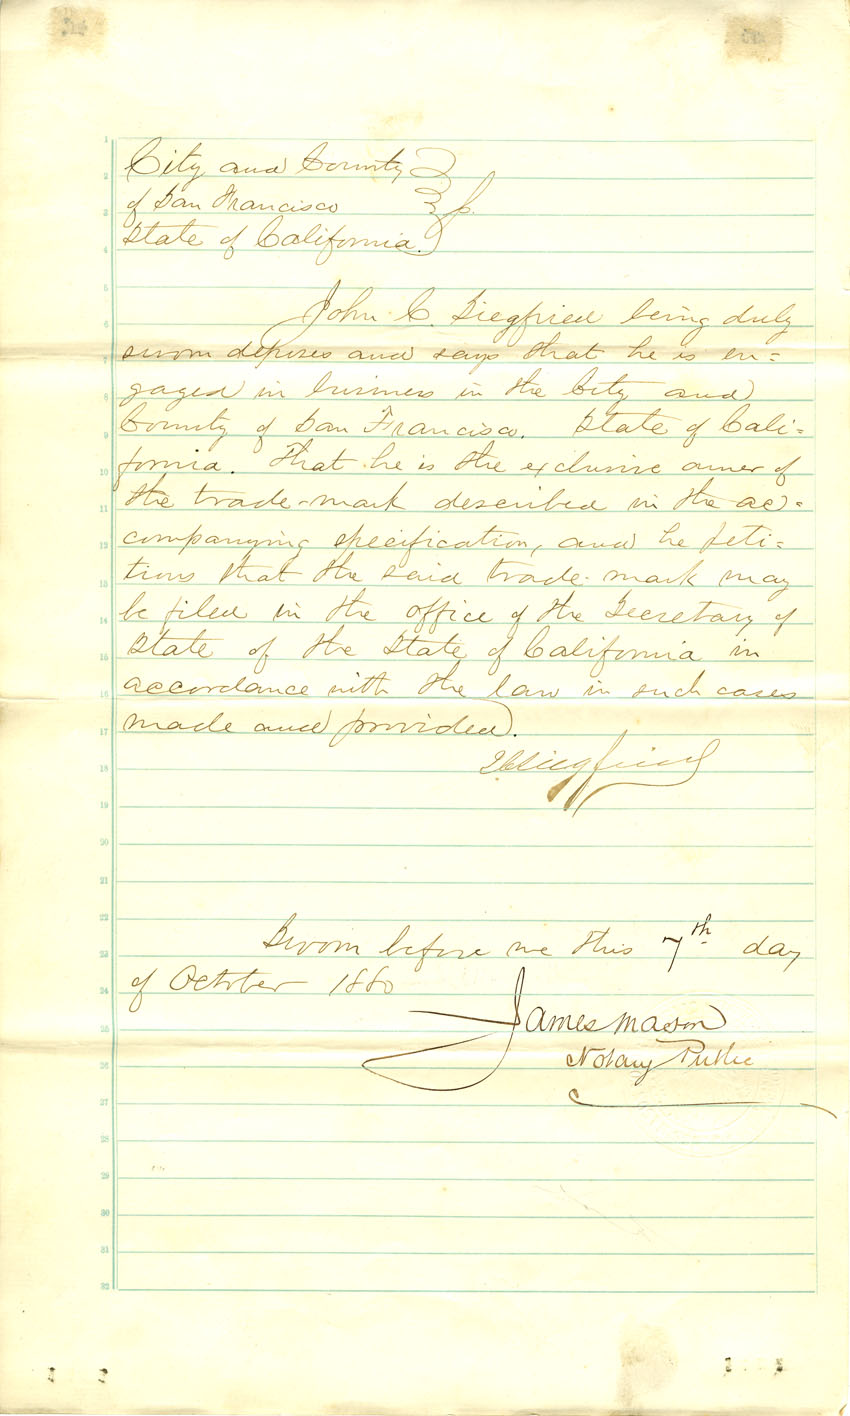 City and County
of San Francisco } ss.
State of California.
John C. Siegfried being duly
sworn deposes and says that he is en=
gaged in business in the City and
County of San Francisco. State of Cali=
fornia. That he is the exclusive owner of
the trade-mark described in the ac=
companying specification, and he peti=
tions that the said trade-mark may
be filed in the office of the Secretary of
State of the State of California in
accordance with the law in such cases
made and provided.
JCSiegfried
Sworn before me this 7th day
of October 1880
James Mason
Notary Public
1
2
3
4
5
6
7
8
9
10
11
12
13
14
15
16
17
18
19
20
21
22
23
24
25
26
27
28
29
30
31
32